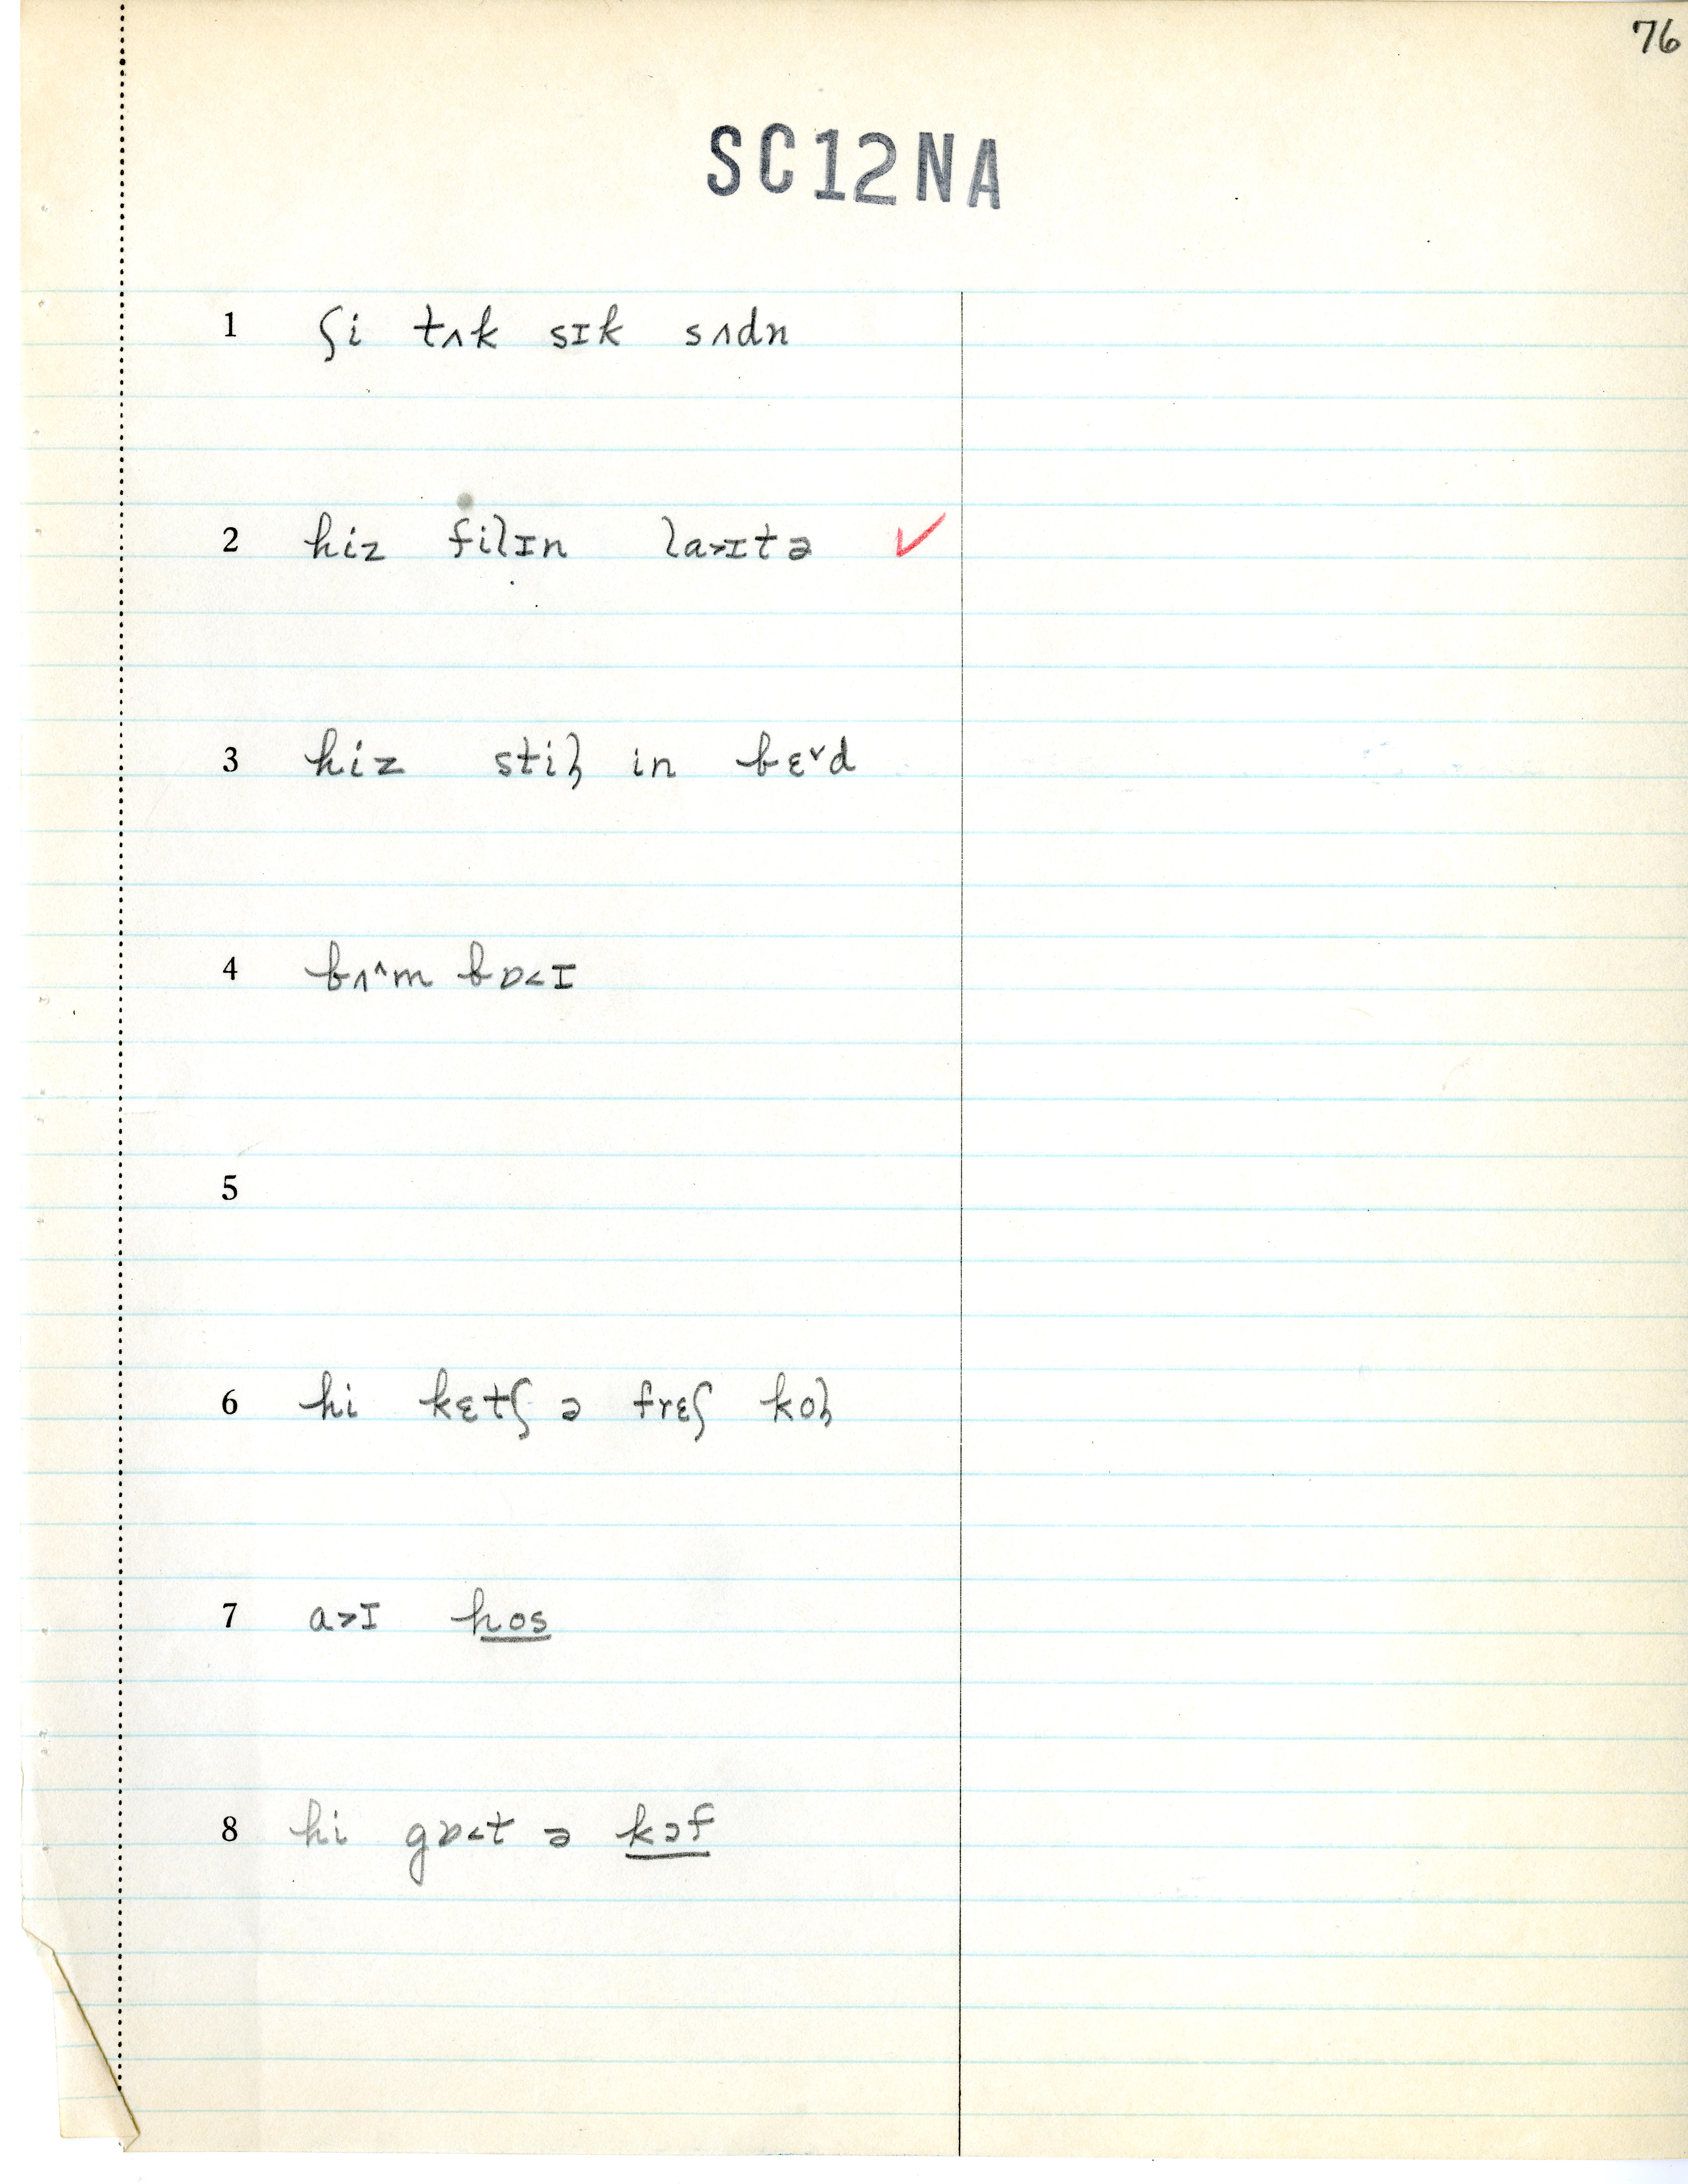 76
SC12NA
1 ʃi tʌk sɪk sʌdn
2 hiz filɪn la˃ɪtə ✓
3 hiz stiɫ in bɛ˅d
4 bʌ˄m bɒ˂ɪ
5
6 hi kɛtʃ ə frɛʃ koɫ
7 a˃ɪ hos
8 hi gɒ˂t ə kɔf